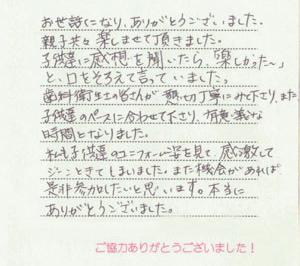 お世話になり、ありがとうございました。
親子共々楽しませて頂きました。
子供達に感想を聞いたら、「楽しかった〜」
と、口をそろえて言っていました。
歯科衛生士の皆さんが親切丁寧にみて下さり、また、
子供達のペースに合わせて下さり、有意義な
時間となりました。
私も子供達のユニフォーム姿を見て感激して
ジーンときてしまいました。また機会があれば
是非参加したいと思います。本当に
ありがとうございました。
ご協力ありがとうございました！